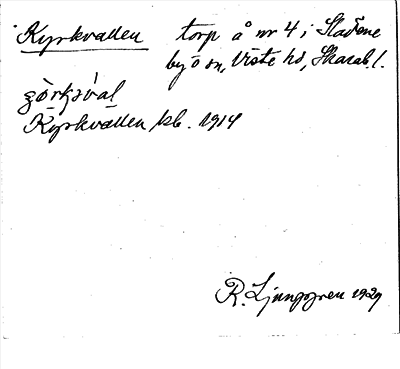 Kyrkvallen torp å nr 4 i Stadene
by, Ö sn, Viste hd, Skarab. l.
Kyrkvallen kb. 1914
R. Ljunggren 1929